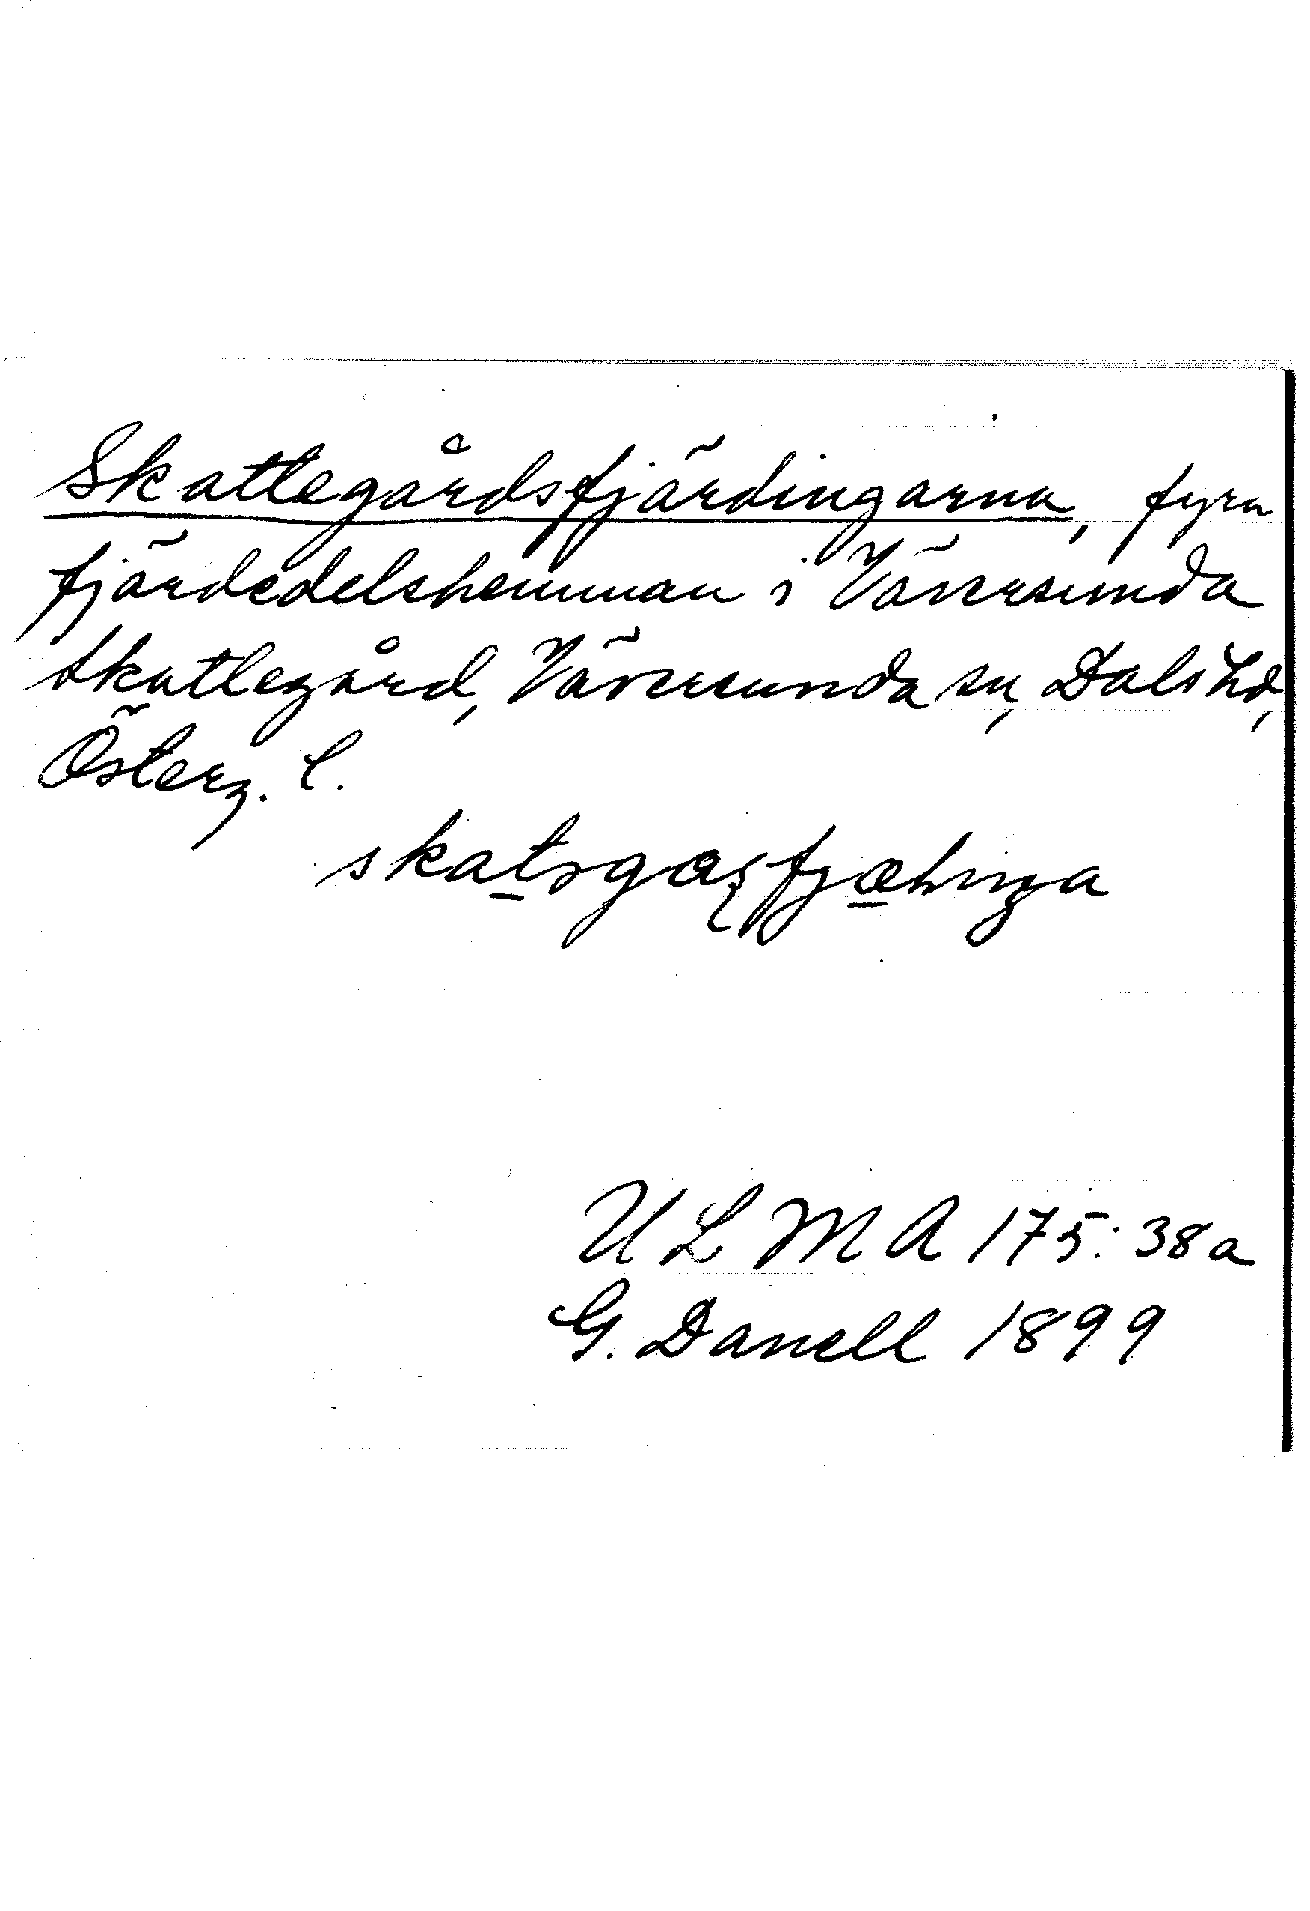 Skattegårdsfjärdingarna, fyra
fjärdedelshemman i Väversunda
Skattegård, Väversunda sn, Dals hd,
Österg. l.
U L M A 175:38a
G. Danell 1899